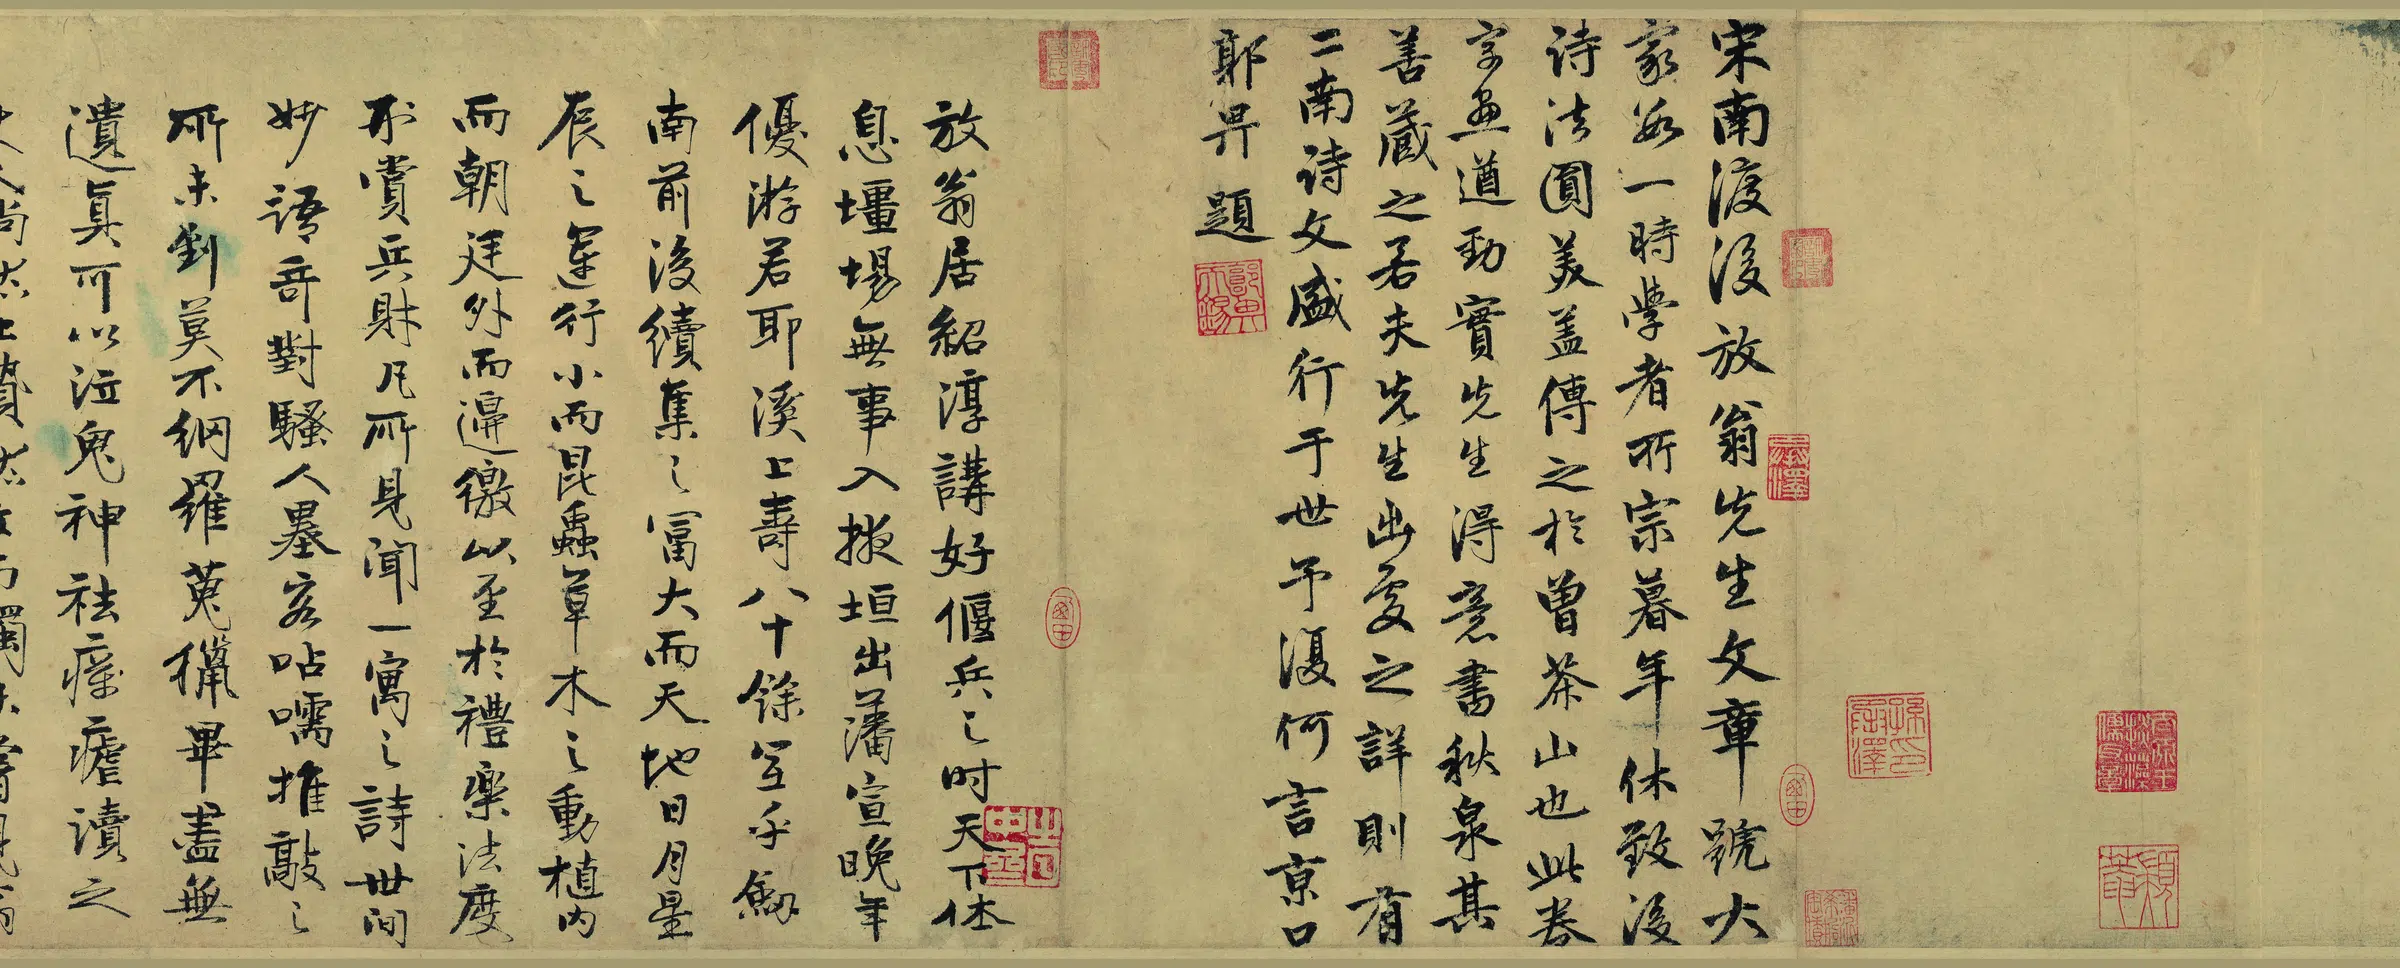 宋南渡後放翁先生文章號大
家為一時學者所宗暮年休致後
詩法圓美盖傳之於曾茶山也此卷
字畫遒勁實先生得意書秋泉其
善藏之若夫先生出處之詳則有
二南詩文盛行于世予復何言京口
郭畀題
放翁居紹淳講好偃兵之時天下休
息壃場無事入掖垣出藩宣晚年
優游若耶溪上壽八十餘宜乎劔
南前後續集之富大而天地日月星
辰之運行小而昆蟲草木之動植内
而朝廷外而邊徼以至於禮樂法度
刑賞兵財凡所見聞一寓之詩世間
妙語奇對騷人墨客呫嚅推敲之
所未到莫不網羅蒐獵畢盡無
遺真可以泣鬼神祛瘧癘讀之